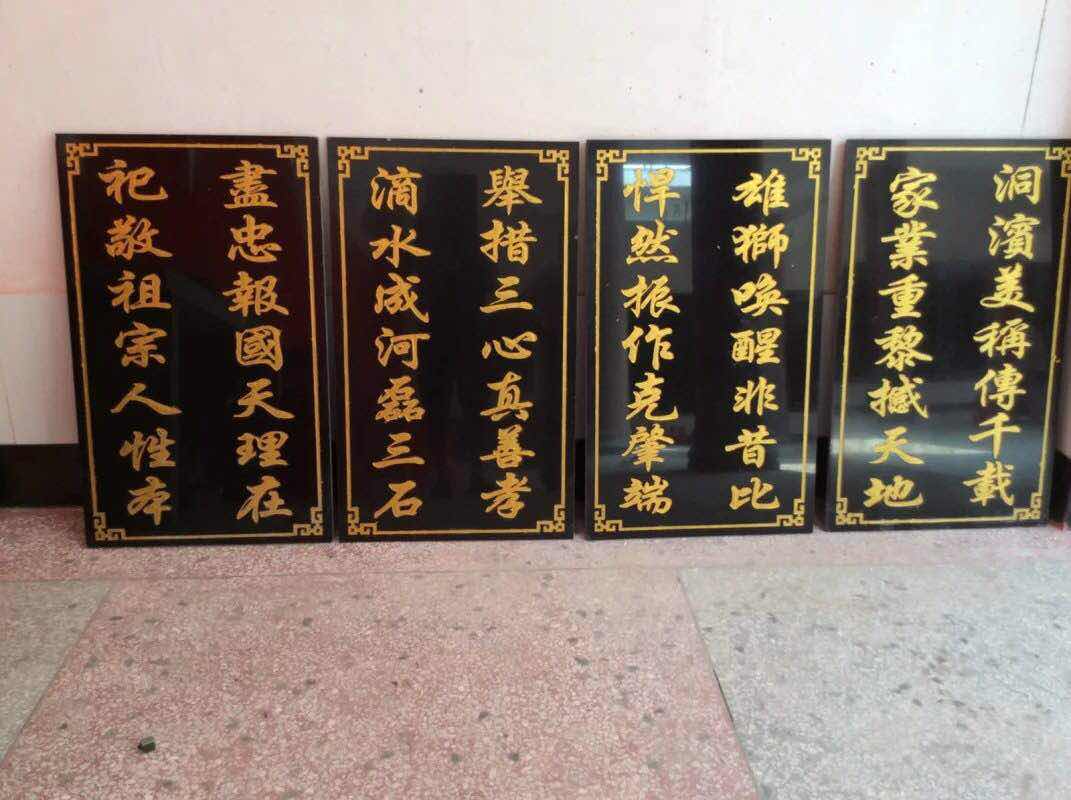 洞濱美稱傳千載
家業重黎撼天地
雄獅喚醒非昔比
悍然振作克肇端
舉措三心真善孝
滴水成河磊三石
盡忠報國天理在
祀敬祖宗人性本